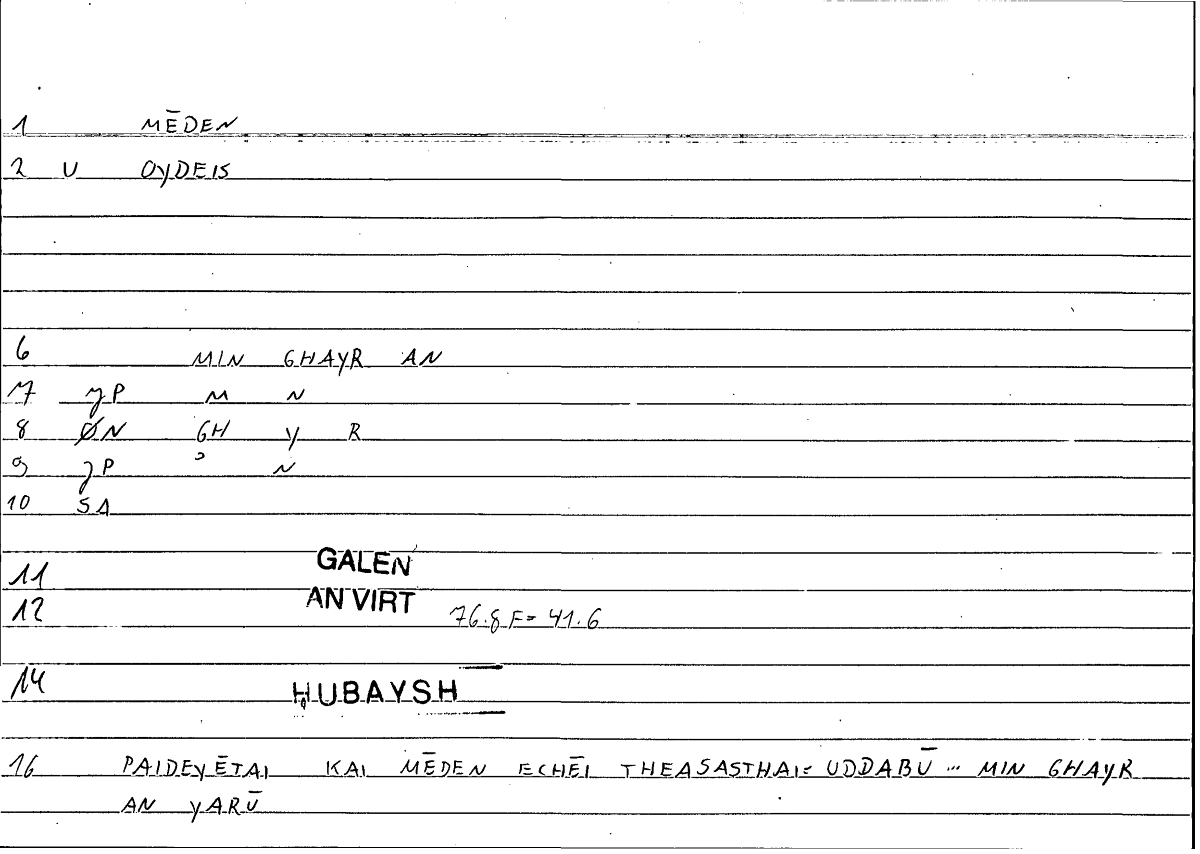 1 MĒDEN
2 U OYDEIS
6 MIN GHAYR AN
7 JP M N
8 ØN GH Y R
9 JP ʾ N
10 SA
11 GALEN
12 AN VIRT 76.8 F= 41.6
14 ḤUBAYSH
16 PAIDEYĒTAI KAI MĒDEN ECHĒI THEASASTHAI= UDDABŪ ... MIN GHAYR
AN YARŪ